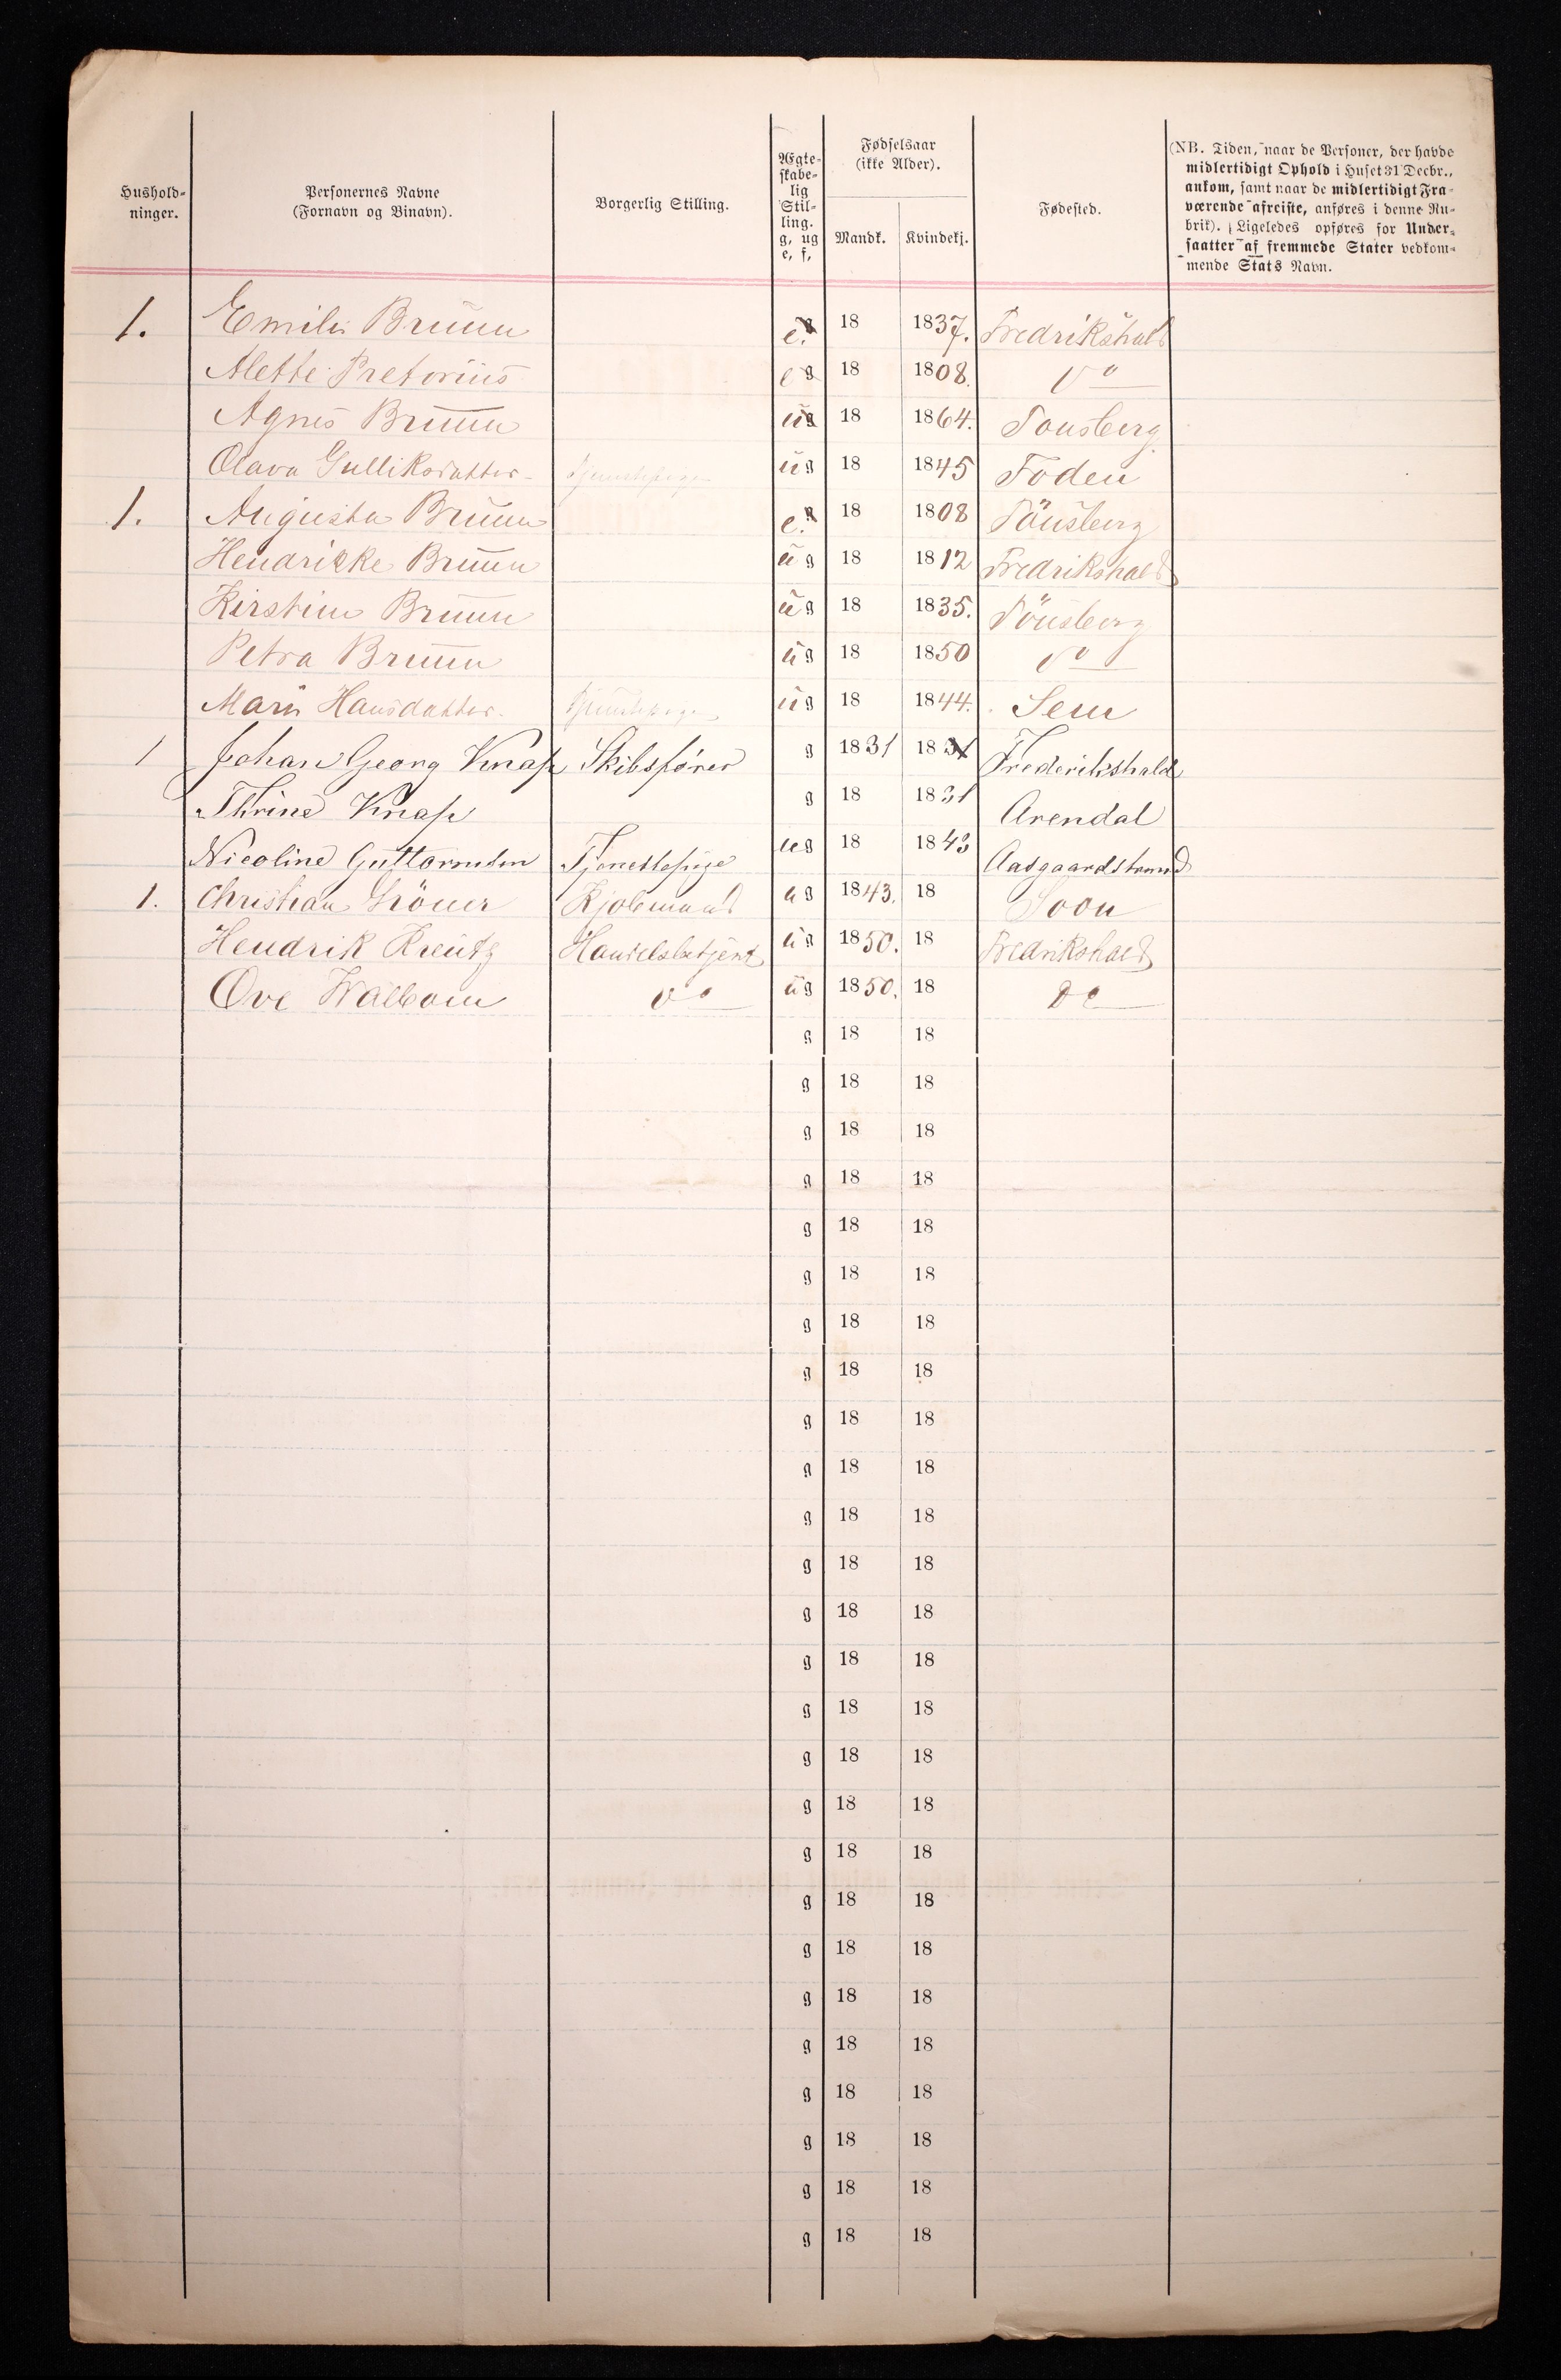 Hushold-
ninger.
Personernes Navne
(Fornavn og Binavn).
Borgerlig Stilling.
Ægte-
skabe-
lig
Stil-
ling.
g, ug
e, f,
Fødselsaar
(ikke Alder).
Mandk.
Kvindekj.
Fødested.
(NB. Tiden, naar de Personer, der havde
midlertidigt Ophold i Huset 31 Decbr.,
ankom, samt naar de midlertidigt Fra-
værende afreiste, anføres i denne Ru-
brik). Ligeledes opføres for Under-
saatter af fremmede Stater vedkom-
mende Stats Navn.
1. Emilie Bruun e. 18 1837. Fredrikshald
Alette Pretorius e 18 1808. Do
Agnes Bruun ug 18 1864. Tonsberg
Olava Gulliksdatter Tjenestepige ug 18 1845 Foden
1. Augusta Bruun e. 18 1808 Tönsberg
Hendrikke Bruun ug 18 1812 Fredrikshald
Kirstine Bruun ug 18 1835. Tönsberg
Petra Bruun ug 18 1850 do
Marie Hansdatter Tjenestepige ug 18 1844. Sem
1 Johan Georg Knap Skibsfører g 1831 18 Frederikshald
Thrine Knap g 18 1831 Arendal
Nicoline Guttormsen Tjenestepige ug 18 1843 Aasgaardstrand
1. Christian Gröner Kjøbmand ug 1843. 18 Soon
Hendrik Kreutz Handelsbetjent ug 1850. 18 Fredrikshald
Ove Walbom do ug 1850. 18 Do
g 18 18
g 18 18
g 18 18
g 18 18
g 18 18
g 18 18
g 18 18
g 18 18
g 18 18
g 18 18
g 18 18
g 18 18
g 18 18
g 18 18
g 18 18
g 18 18
g 18 18
g 18 18
g 18 18
g 18 18
g 18 18
g 18 18
g 18 18
g 18 18
g 18 18
g 18 18